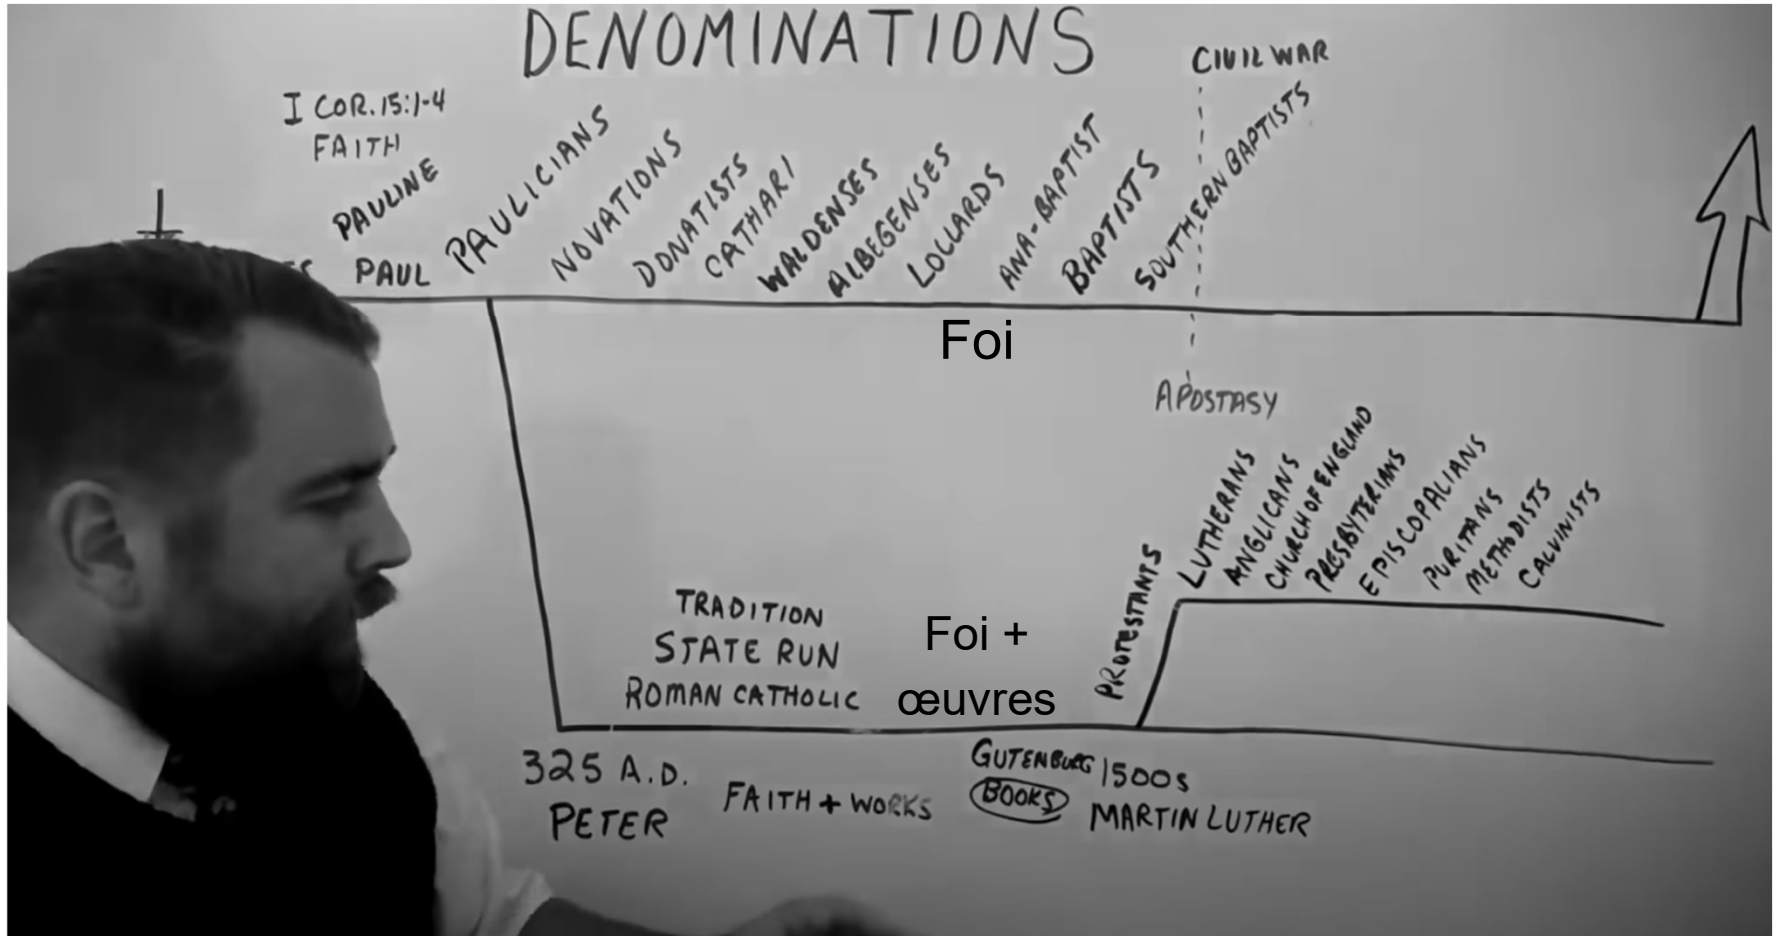 DENOMINATIONS
CIVIL WAR
I COR. 15:1-4
FAITH
PAULINE
PAUL
PAULICIANS
NOVATIONS
DONATISTS
CATHARI
WALDENSES
ALBEGENSES
LOLLARDS
ANA-BAPTIST
BAPTISTS
SOUTHERN BAPTISTS
Foi
APOSTASY
PROTESTANTS
LUTHERANS
ANGLICANS
CHURCH OF ENGLAND
PRESBYTERIANS
EPISCOPALIANS
PURITANS
METHODISTS
CALVINISTS
TRADITION
STATE RUN
ROMAN CATHOLIC
Foi +
œuvres
325 A.D.
PETER
FAITH + WORKS
GUTENBURG 1500s
BOOKS
MARTIN LUTHER